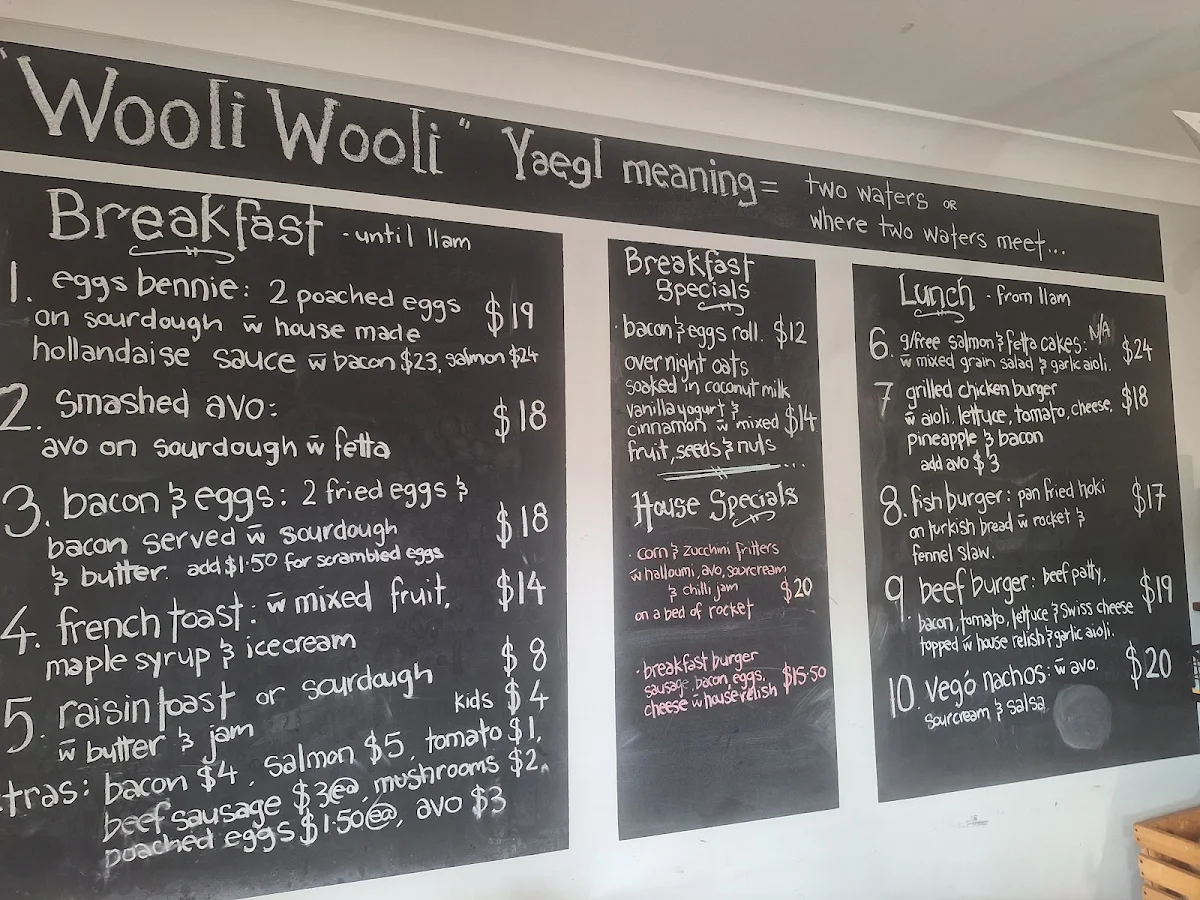 "Wooli Wooli" Yaegl meaning = two waters or
where two waters meet...
Breakfast - until 11am
1. eggs bennie: 2 poached eggs
on sourdough w̄ house made $19
hollandaise sauce w̄ bacon $23, salmon $24
2. smashed avo: $18
avo on sourdough w̄ fetta
3. bacon & eggs: 2 fried eggs &
bacon served w̄ sourdough $18
& butter. add $1.50 for scrambled eggs
4. french toast: w̄ mixed fruit, $14
maple syrup & icecream
5. raisin toast or sourdough $8
w̄ butter & jam kids $4
tras: bacon $4, salmon $5, tomato $1,
beef sausage $3@, mushrooms $2,
poached eggs $1.50@, avo $3
Breakfast
Specials
· bacon & eggs roll. $12
overnight oats
soaked in coconut milk
vanilla yogurt &
cinnamon w̄ mixed $14
fruit, seeds & nuts
House Specials
· corn & zucchini fritters
w̄ halloumi, avo, sourcream
& chilli jam $20
on a bed of rocket
· breakfast burger
sausage, bacon, eggs, $15.50
cheese w̄ house relish
Lunch - from 11am
6. g/free salmon & fetta cakes: N/A $24
w̄ mixed grain salad & garlic aioli.
7 grilled chicken burger
w̄ aioli, lettuce, tomato, cheese, $18
pineapple & bacon
add avo $3
8. fish burger: pan fried hoki $17
on turkish bread w̄ rocket &
fennel slaw.
9. beef burger: beef patty, $19
bacon, tomato, lettuce & swiss cheese
topped w̄ house relish & garlic aioli.
10. vego nachos: w̄ avo, $20
sourcream & salsa